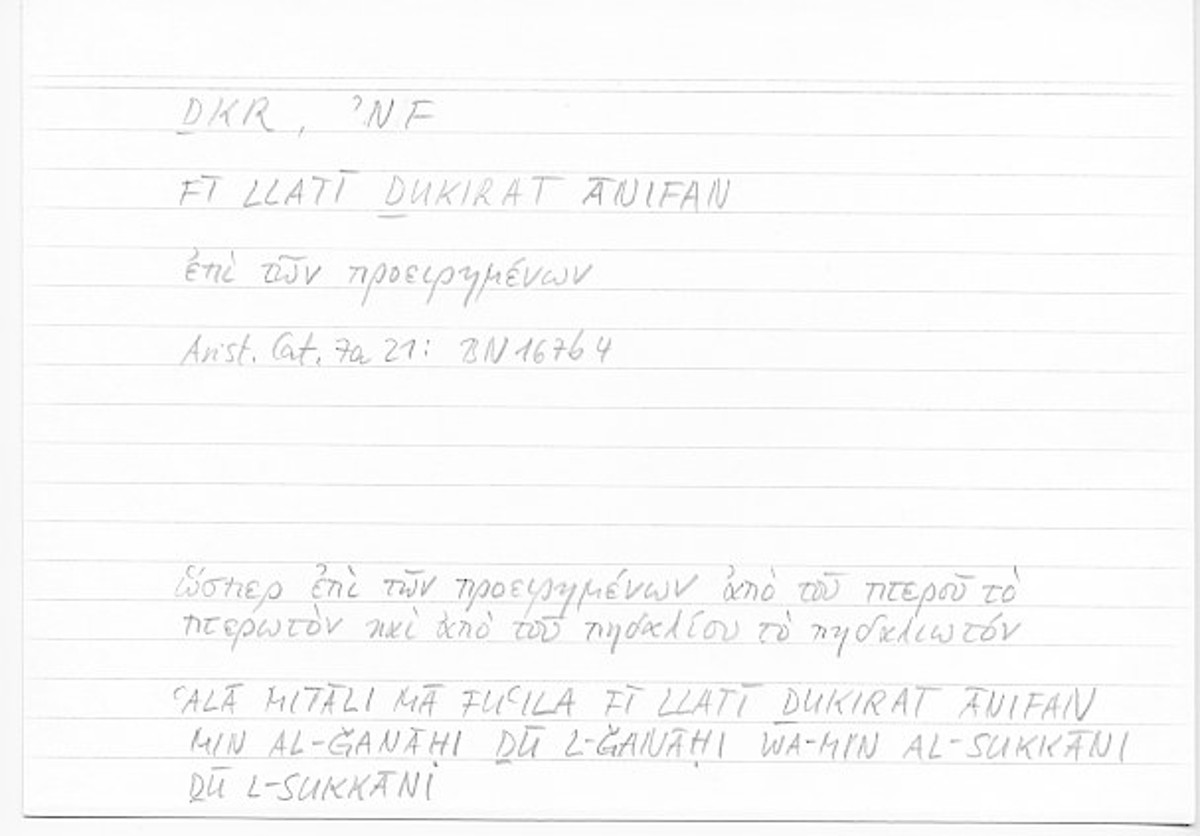 ḎKR, ʾNF
FĪ LLATĪ ḎUKIRAT ĀNIFAN
ἐπὶ τῶν προειρημένων
Arist. Cat. 7a 21: BN 167b 4
ὥσπερ ἐπὶ τῶν προειρημένων ἀπὸ τοῦ πτεροῦ τὸ
πτερωτὸν καὶ ἀπὸ τοῦ πηδαλίου τὸ πηδαλιωτόν
ʿALĀ MITĀLI MĀ FUʿILA FĪ LLATĪ ḎUKIRAT ĀNIFAN
MIN AL-ǦANĀḤI ḎŪ L-ǦANĀḤI WA-MIN AL-SUKKĀNI
ḎŪ L-SUKKĀNI